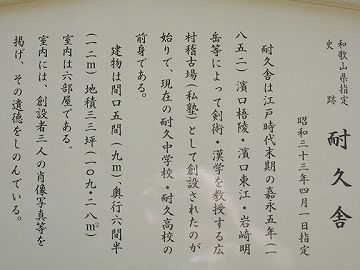 和歌山県指定
史跡
耐久舎
昭和三十三年四月一日指定
耐久舎は江戸時代末期の嘉永五年(一
八五二)濱口梧陵・濱口東江・岩崎明
岳等によって剣術・漢学を教授する広
村稽古場(私塾)として創設されたのが
始りで、現在の耐久中学校・耐久高校の
前身である。
建物は間口五間(九m)、奥行六間半
(一二m)地積三三坪(一〇九・二八㎡)
室内は六部屋である。
室内には、創設者三人の肖像写真等を
掲げ、その遺徳をしのんでいる。